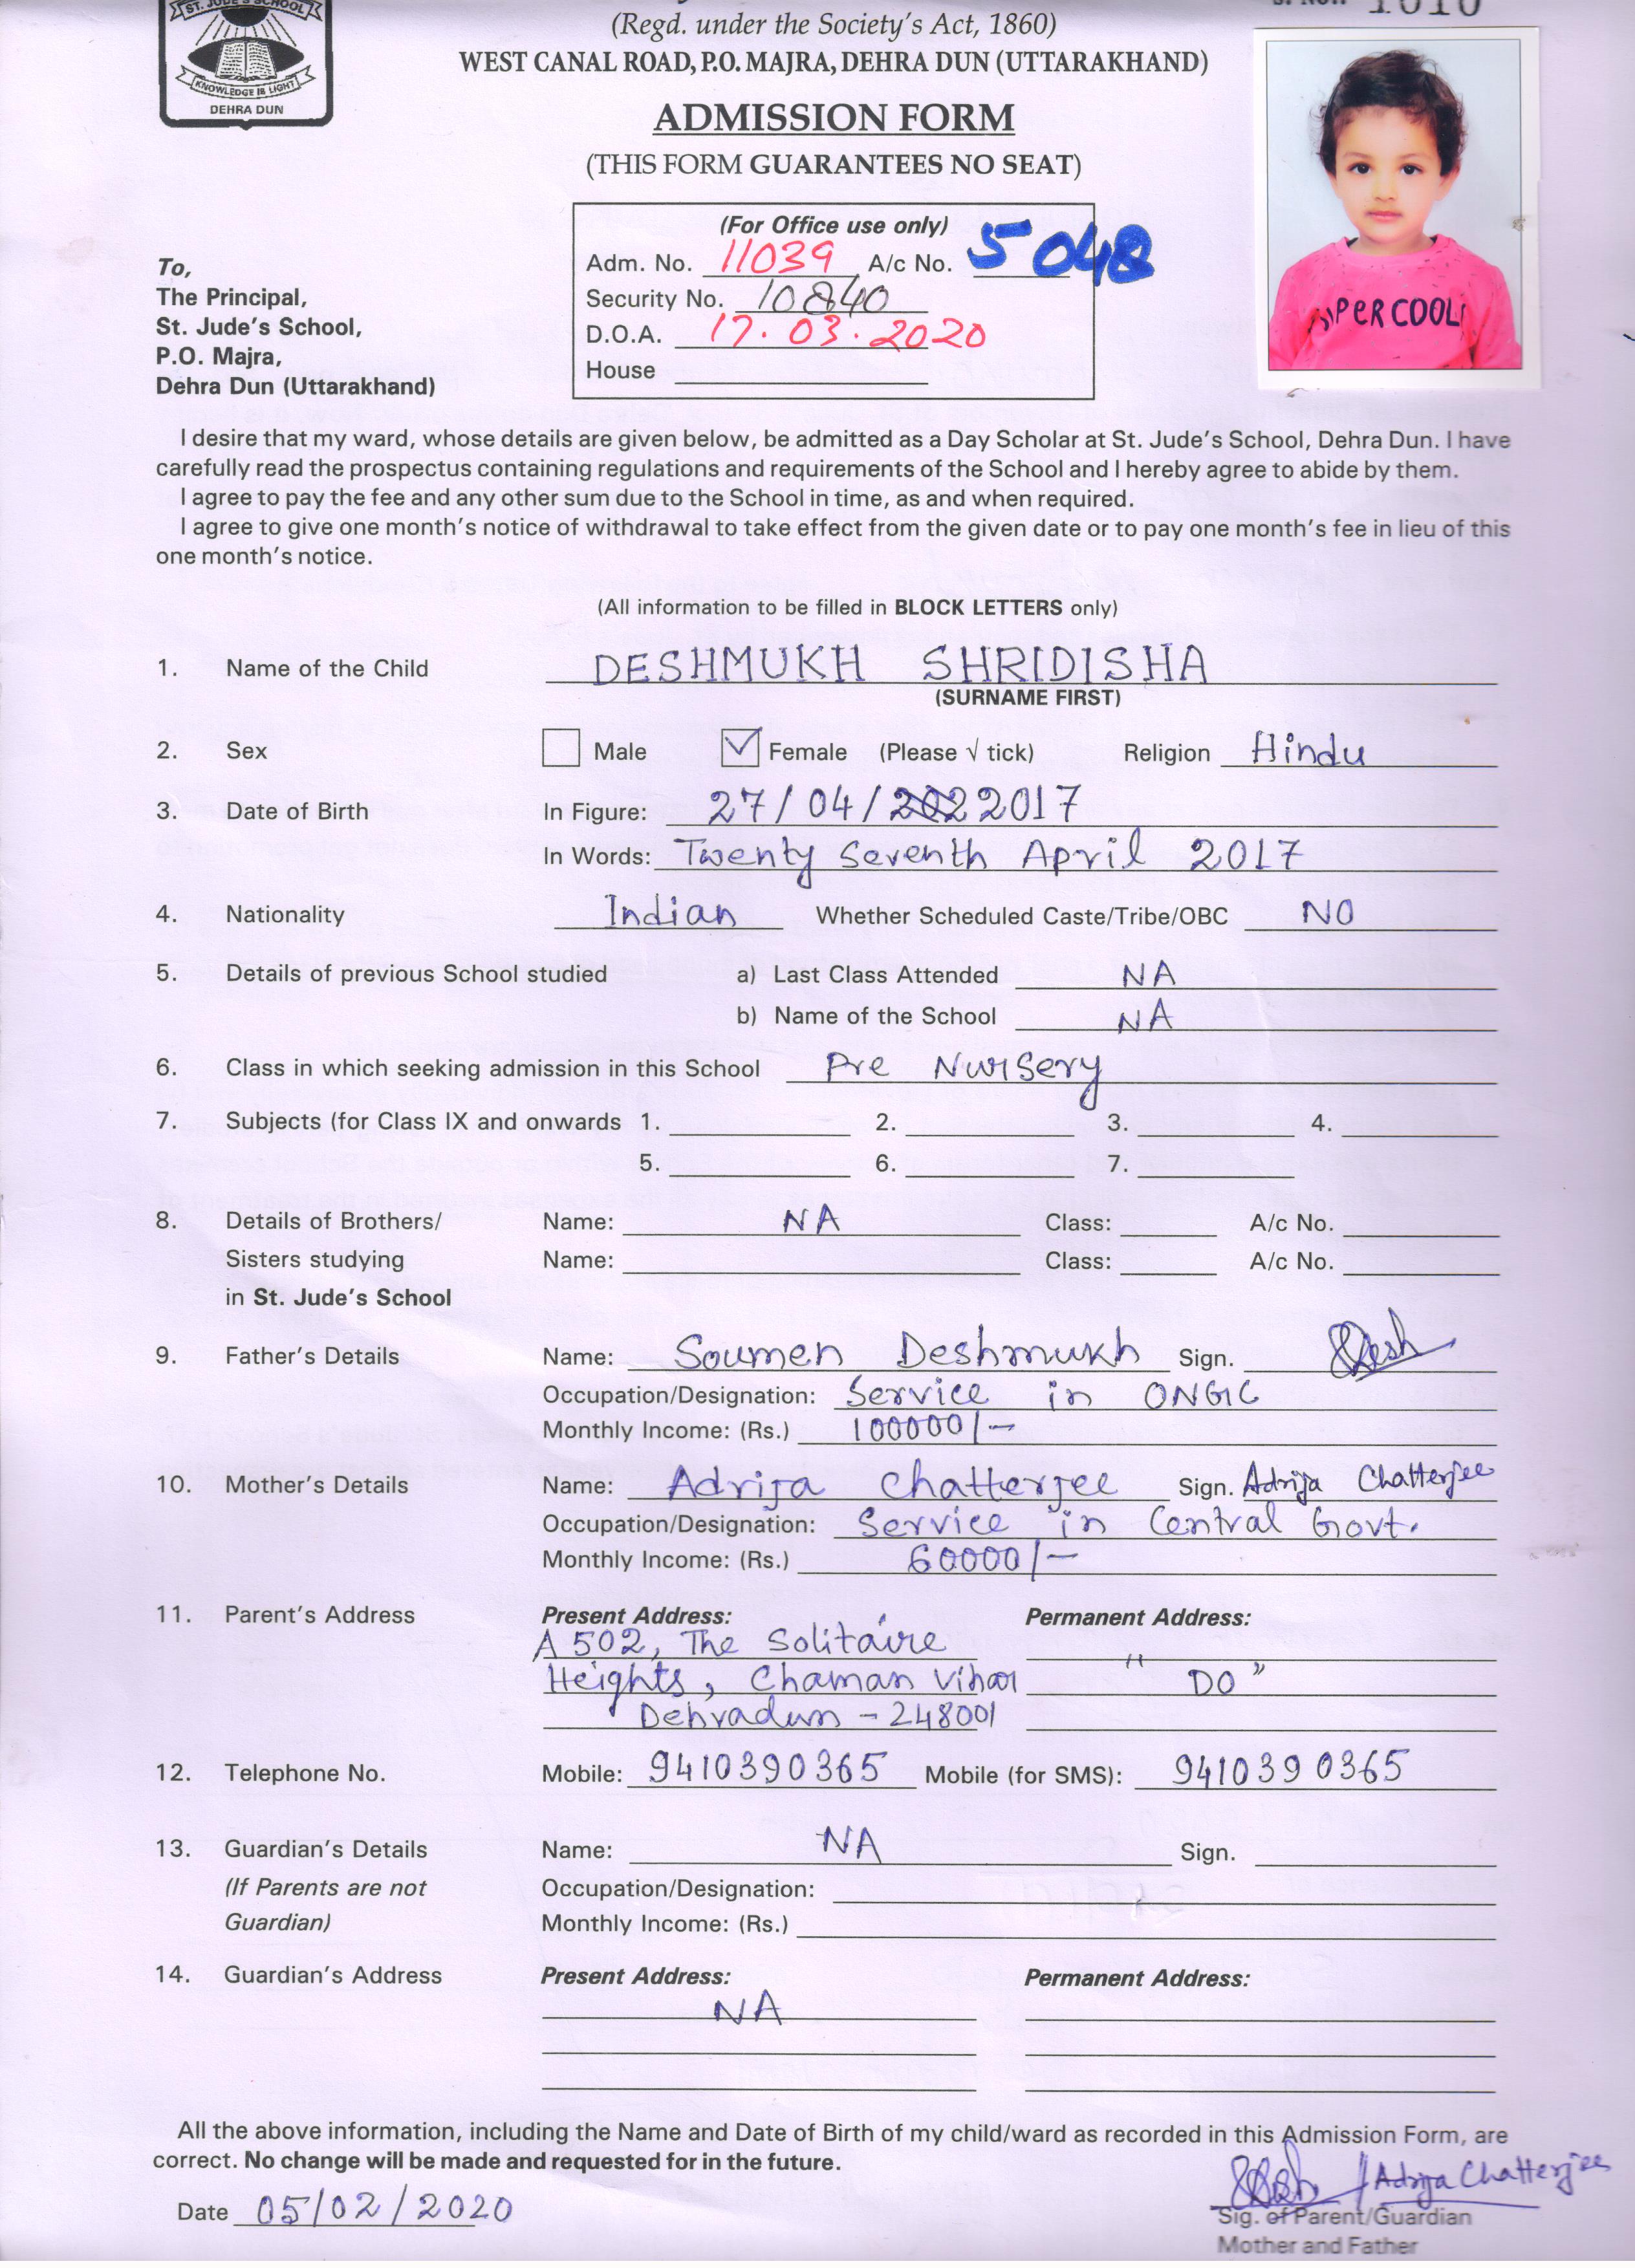 ST. JUDE'S SCHOOL
KNOWLEDGE IS LIGHT
DEHRA DUN
1010
(Regd. under the Society's Act, 1860)
WEST CANAL ROAD, P.O. MAJRA, DEHRA DUN (UTTARAKHAND)
ADMISSION FORM
(THIS FORM GUARANTEES NO SEAT)
(For Office use only)
Adm. No. 11039 A/c No. 5048
Security No. 10840
D.O.A. 17.03.2020
House
To,
The Principal,
St. Jude's School,
P.O. Majra,
Dehra Dun (Uttarakhand)
PER COOL
I desire that my ward, whose details are given below, be admitted as a Day Scholar at St. Jude's School, Dehra Dun. I have
carefully read the prospectus containing regulations and requirements of the School and I hereby agree to abide by them.
I agree to pay the fee and any other sum due to the School in time, as and when required.
I agree to give one month's notice of withdrawal to take effect from the given date or to pay one month's fee in lieu of this
one month's notice.
(All information to be filled in BLOCK LETTERS only)
1. Name of the Child DESHMUKH SHRIDISHA
(SURNAME FIRST)
2. Sex Male Female (Please √ tick) Religion Hindu
3. Date of Birth In Figure: 27/04/2017
In Words: Twenty Seventh April 2017
4. Nationality Indian Whether Scheduled Caste/Tribe/OBC NO
5. Details of previous School studied a) Last Class Attended NA
b) Name of the School NA
6. Class in which seeking admission in this School Pre Nursery
7. Subjects (for Class IX and onwards 1. 2. 3. 4.
5. 6. 7.
8. Details of Brothers/ Name: NA Class: A/c No.
Sisters studying Name: Class: A/c No.
in St. Jude's School
9. Father's Details Name: Soumen Deshmukh Sign.
Occupation/Designation: Service in ONGC
Monthly Income: (Rs.) 100000/-
10. Mother's Details Name: Adrija Chatterjee Sign. Adrija Chatterjee
Occupation/Designation: Service in Central Govt.
Monthly Income: (Rs.) 60000/-
11. Parent's Address Present Address: Permanent Address:
A 502, The Solitaire
Heights, Chaman Vihar " DO "
Dehradun - 248001
12. Telephone No. Mobile: 9410390365 Mobile (for SMS): 9410390365
13. Guardian's Details Name: NA Sign.
(If Parents are not Occupation/Designation:
Guardian) Monthly Income: (Rs.)
14. Guardian's Address Present Address: Permanent Address:
NA
All the above information, including the Name and Date of Birth of my child/ward as recorded in this Admission Form, are
correct. No change will be made and requested for in the future.
Date 05/02/2020 / Adrija Chatterjee
Sig. of Parent/Guardian
Mother and Father